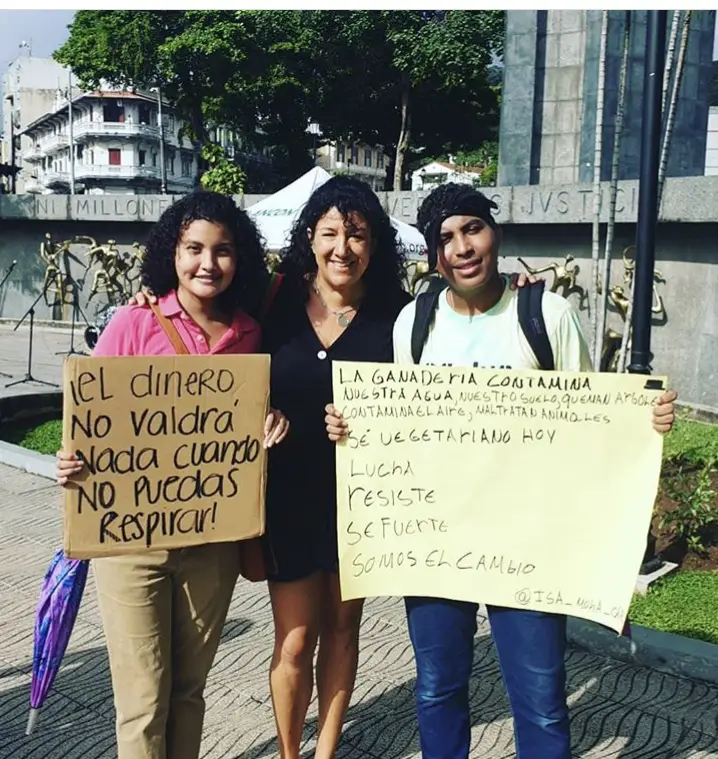 NI MILLONE
JVSTICI
¡EL dinero
No valdrá
Nada cuando
NO PUEDAS
Respirar!
LA GANADERIA CONTAMINA
NUESTRA AGUA, NUESTRO SUELO, QUEMAN ARBOLES
CONTAMINA EL AIRE, MALTRATAN ANIMALES
SÉ VEGETARIANO HOY
LUCHA
RESISTE
SE FUERTE
SOMOS EL CAMBIO